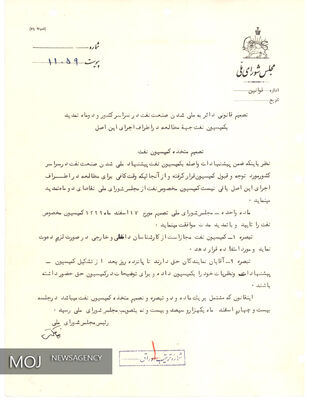 مجلس شورای ملی
اداره قوانین
تاریخ
شماره
پیوست ۱۱۰۵۹
تصمیم قانونی دائر به ملی شدن صنعت نفت در سراسر کشور و دو ماه تمدید
بکمیسیون نفت جهة مطالعه در اطراف اجرای این اصل
تصمیم متخذه کمیسیون نفت
نظر باینکه ضمن پیشنهادات واصله بکمیسیون نفت پیشنهاد ملی شدن صنعت نفت در سراسر
کشور مورد توجه و قبول کمیسیون قرار گرفته و از آنجائیکه وقت کافی برای مطالعه در اطراف
اجرای این اصل باقی نیست کمیسیون مخصوص نفت از مجلس شورای ملی تقاضای دو ماه تمدید
مینماید
ماده واحده - مجلس شورای ملی تصمیم مورخ ۱۷ اسفند ماه ۱۳۲۹ کمیسیون مخصوص
نفت را تایید و با تمدید مدت موافقت مینماید
تبصره ۱- کمیسیون نفت مجاز است از کارشناسان داخلی و خارجی در صورت لزوم دعوت
نماید و مورد استفاده قرار دهد
تبصره ۲- آقایان نمایندگان حق دارند تا پانزده روز بعد از تشکیل کمیسیون -
پیشنهادات و نظریات خود را بکمیسیون داده و برای توضیحات در کمیسیون حق حضور داشته
باشند
اینقانون که مشتمل بر یک ماده و دو تبصره و تصمیم متخذه کمیسیون نفت میباشد در جلسه
بیست و چهارم اسفند ماه یکهزار و سیصد و بیست و نه بتصویب مجلس شورای ملی رسید
رئیس مجلس شورای ملی
MOJ NEWSAGENCY